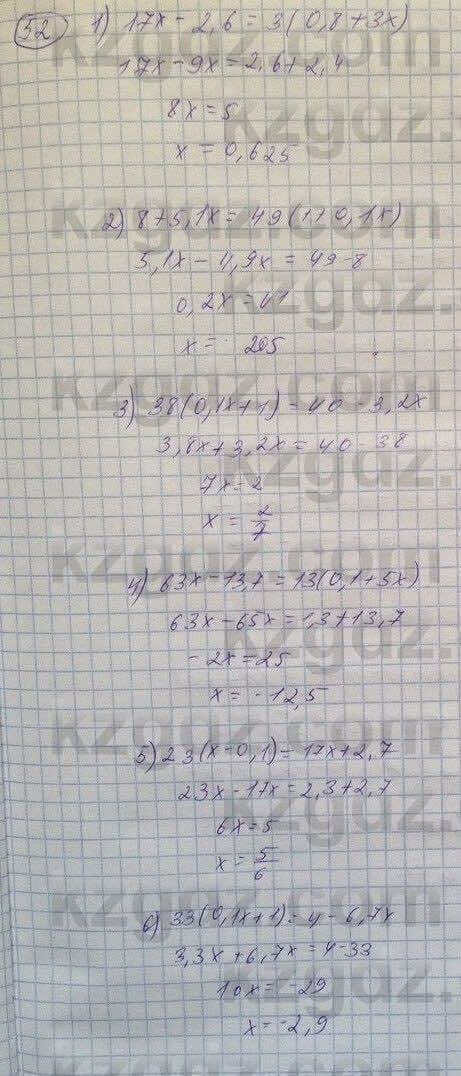 52 1) 17x - 2,6 = 3(0,8+3x)
17x - 9x = 2,6+2,4
8x = 5
x = 0,625
2) 8+5,1x = 49(1+0,1x)
5,1x - 4,9x = 49-8
0,2x = 41
x = 205
3) 38(0,1x+1) = 40 - 3,2x
3,8x+3,2x = 40-38
7x = 2
x = 2/7
4) 63x - 13,7 = 13(0,1+5x)
63x - 65x = 1,3+13,7
-2x = 25
x = -12,5
5) 23(x-0,1) = 17x+2,7
23x - 17x = 2,3+2,7
6x = 5
x = 5/6
6) 33(0,1x+1) = 4 - 6,7x
3,3x+6,7x = 4-33
10x = -29
x = -2,9
kzgdz.com